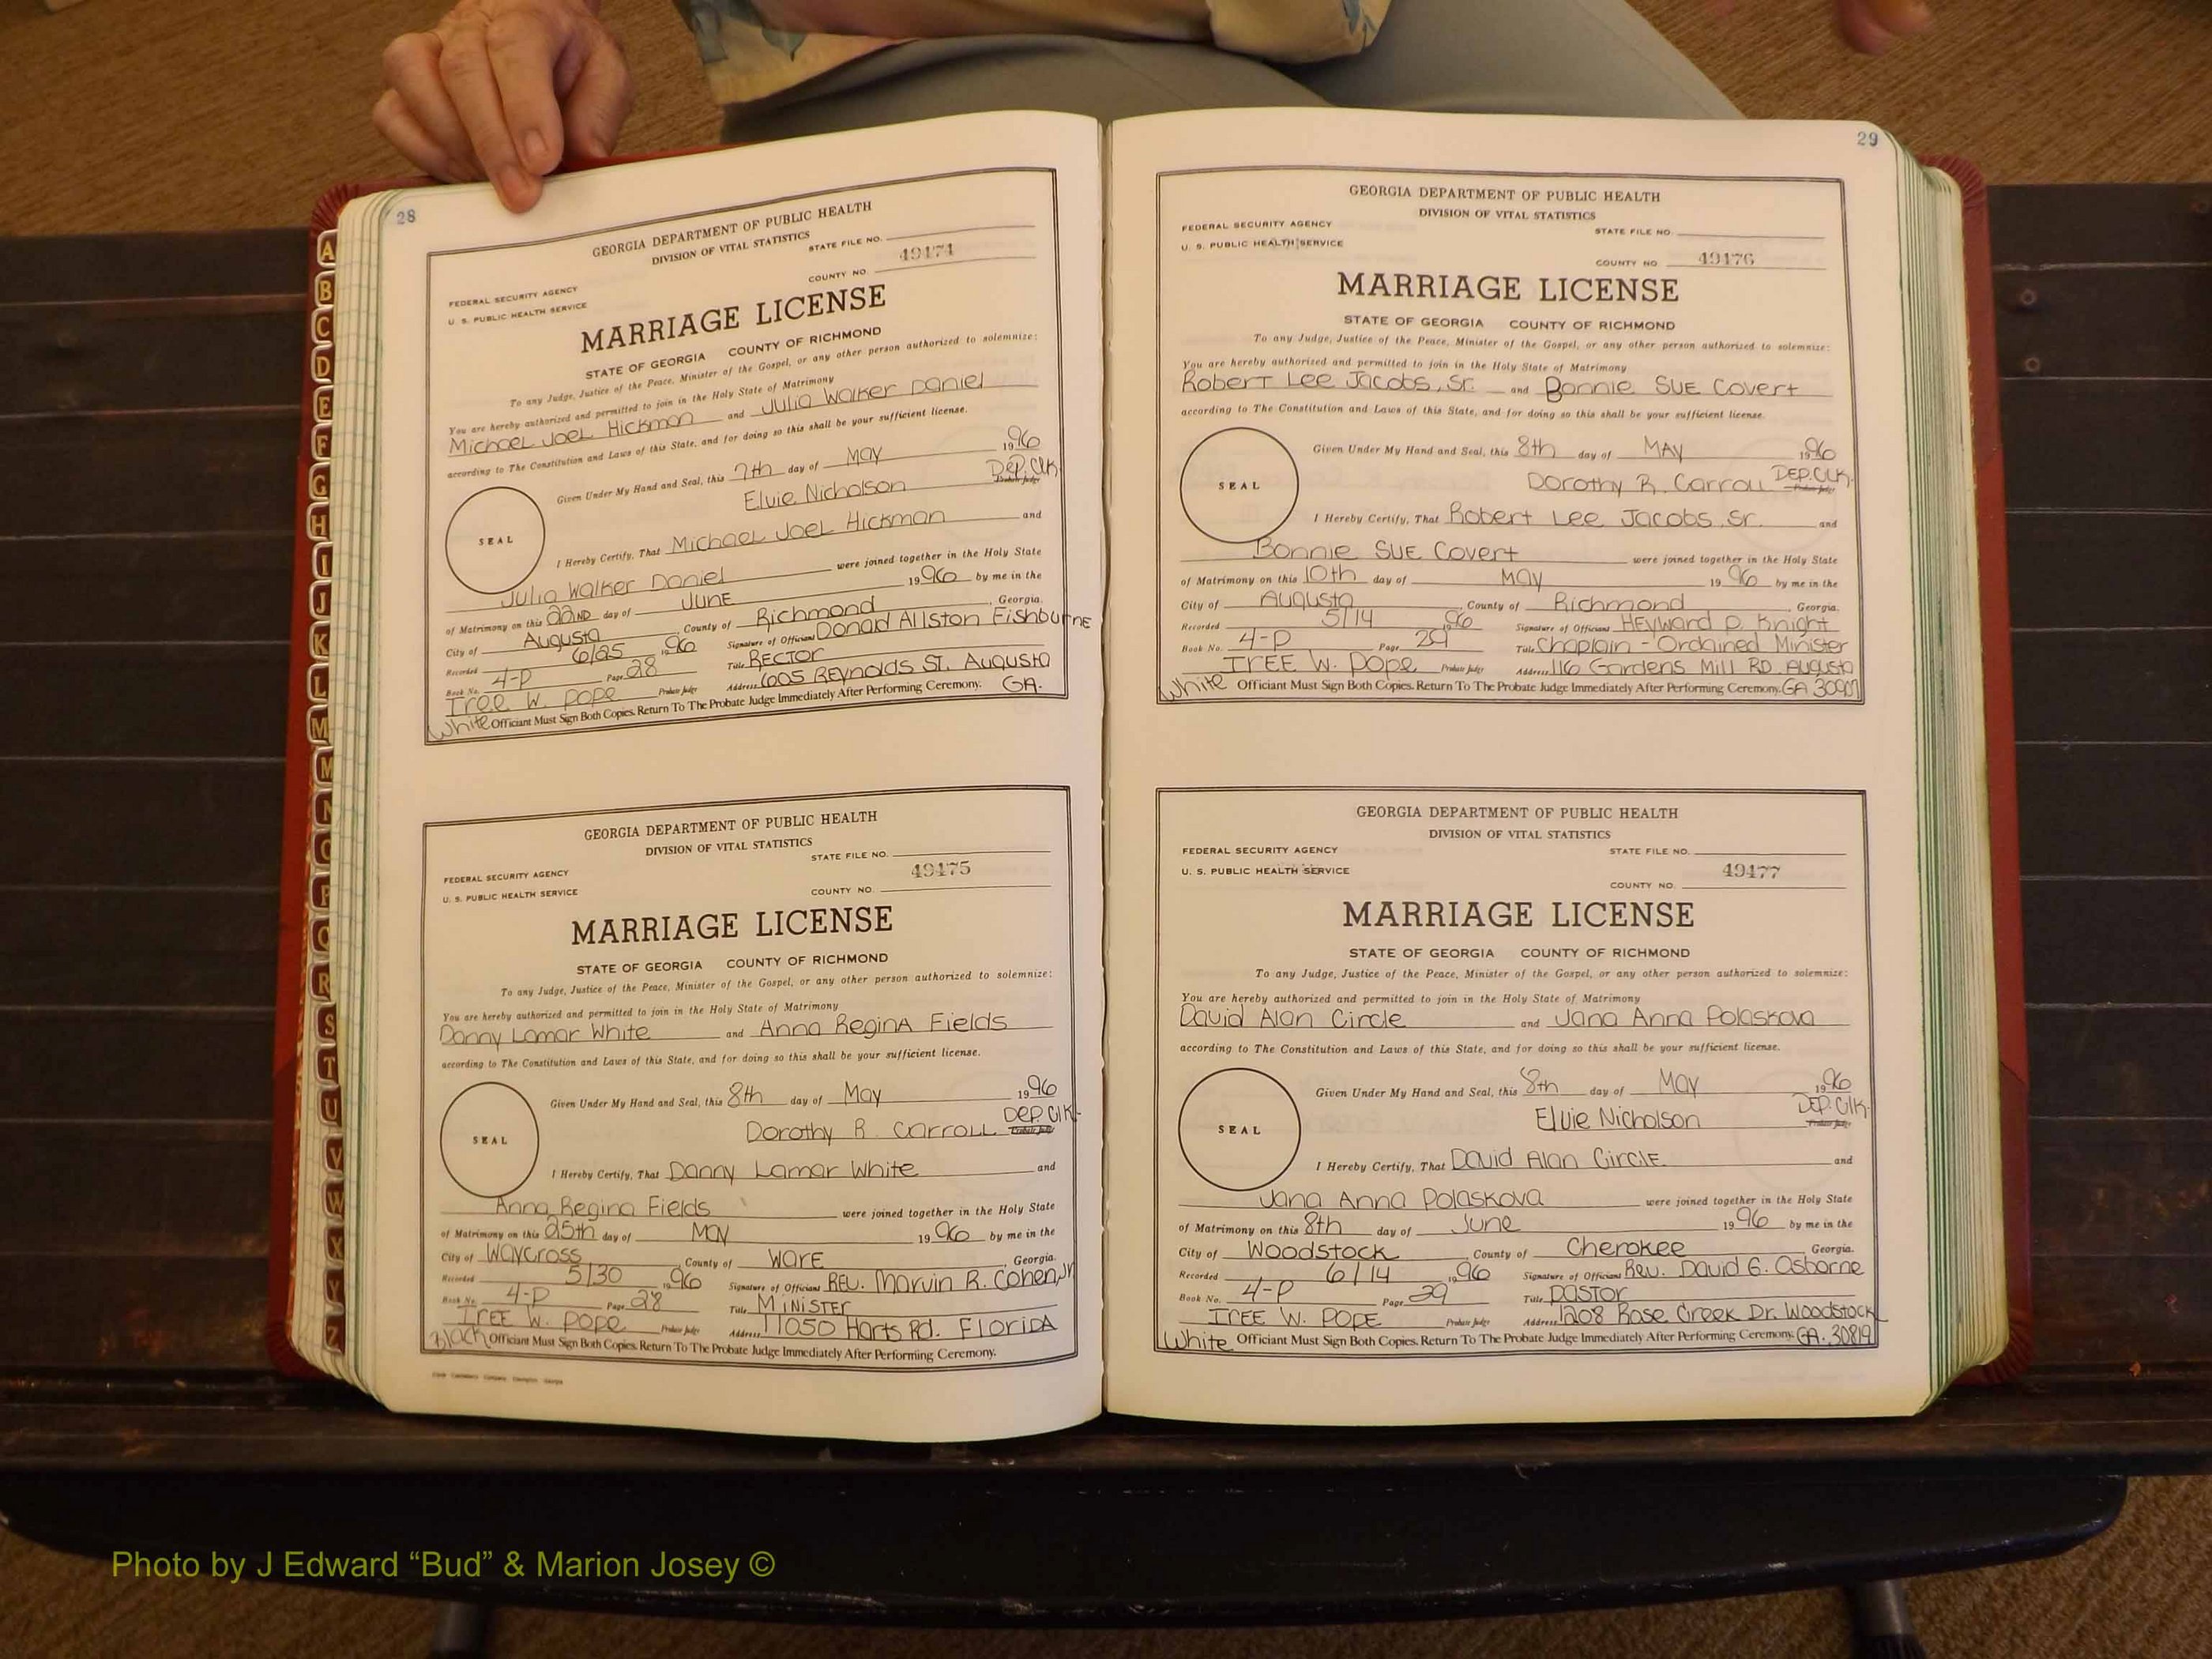 28
GEORGIA DEPARTMENT OF PUBLIC HEALTH
DIVISION OF VITAL STATISTICS
STATE FILE NO.
COUNTY NO. 49474
FEDERAL SECURITY AGENCY
U. S. PUBLIC HEALTH SERVICE
MARRIAGE LICENSE
STATE OF GEORGIA COUNTY OF RICHMOND
To any Judge, Justice of the Peace, Minister of the Gospel, or any other person authorized to solemnize:
You are hereby authorized and permitted to join in the Holy State of Matrimony
Michael Joel Hickman and Julia Walker Daniel
according to The Constitution and Laws of this State, and for doing so this shall be your sufficient license.
Given Under My Hand and Seal, this 7th day of May 1996
Elvie Nicholson Dep. Clk. Probate Judge
SEAL
I Hereby Certify, That Michael Joel Hickman and
Julia Walker Daniel were joined together in the Holy State
of Matrimony on this 22ND day of June 1996 by me in the
City of Augusta County of Richmond, Georgia.
Recorded 6/25 1996 Signature of Official Donald Allston Fishburne
Book No. 4-P Page 28 Title Rector
Iree W. Pope Probate Judge Address 605 Reynolds St. Augusta GA.
White Officiant Must Sign Both Copies. Return To The Probate Judge Immediately After Performing Ceremony.
GEORGIA DEPARTMENT OF PUBLIC HEALTH
DIVISION OF VITAL STATISTICS
STATE FILE NO.
49475
FEDERAL SECURITY AGENCY
U. S. PUBLIC HEALTH SERVICE COUNTY NO.
MARRIAGE LICENSE
STATE OF GEORGIA COUNTY OF RICHMOND
To any Judge, Justice of the Peace, Minister of the Gospel, or any other person authorized to solemnize:
You are hereby authorized and permitted to join in the Holy State of Matrimony
Danny Lamar White and Anna Regina Fields
according to The Constitution and Laws of this State, and for doing so this shall be your sufficient license.
Given Under My Hand and Seal, this 8th day of May 1996
Dorothy R. Carroll Dep. Clk. Probate Judge
SEAL
I Hereby Certify, That Danny Lamar White and
Anna Regina Fields were joined together in the Holy State
of Matrimony on this 25th day of May 1996 by me in the
City of Waycross County of Ware, Georgia.
Recorded 5/30 1996 Signature of Official Rev. Marvin R. Cohen, Jr
Book No. 4-P Page 28 Title Minister
Iree W. Pope Probate Judge Address 11050 Harts Rd. Florida
Black Officiant Must Sign Both Copies. Return To The Probate Judge Immediately After Performing Ceremony.
29
GEORGIA DEPARTMENT OF PUBLIC HEALTH
DIVISION OF VITAL STATISTICS
FEDERAL SECURITY AGENCY STATE FILE NO.
U. S. PUBLIC HEALTH SERVICE
COUNTY NO. 49476
MARRIAGE LICENSE
STATE OF GEORGIA COUNTY OF RICHMOND
To any Judge, Justice of the Peace, Minister of the Gospel, or any other person authorized to solemnize:
You are hereby authorized and permitted to join in the Holy State of Matrimony
Robert Lee Jacobs, Sr. and Bonnie Sue Covert
according to The Constitution and Laws of this State, and for doing so this shall be your sufficient license.
Given Under My Hand and Seal, this 8th day of May 1996
Dorothy R. Carroll Dep. Clk. Probate Judge
SEAL
I Hereby Certify, That Robert Lee Jacobs, Sr. and
Bonnie Sue Covert were joined together in the Holy State
of Matrimony on this 10th day of May 1996 by me in the
City of Augusta, County of Richmond, Georgia.
Recorded 5/14 1996 Signature of Official Heyward D. Knight
Book No. 4-P Page 29 Title Chaplain - Ordained Minister
Iree W. Pope Probate Judge Address 116 Gardens Mill RD. Augusta
White Officiant Must Sign Both Copies. Return To The Probate Judge Immediately After Performing Ceremony. GA 30907
GEORGIA DEPARTMENT OF PUBLIC HEALTH
DIVISION OF VITAL STATISTICS
FEDERAL SECURITY AGENCY STATE FILE NO.
U. S. PUBLIC HEALTH SERVICE 49477
COUNTY NO.
MARRIAGE LICENSE
STATE OF GEORGIA COUNTY OF RICHMOND
To any Judge, Justice of the Peace, Minister of the Gospel, or any other person authorized to solemnize:
You are hereby authorized and permitted to join in the Holy State of Matrimony
David Alan Circle and Jana Anna Polaskova
according to The Constitution and Laws of this State, and for doing so this shall be your sufficient license.
Given Under My Hand and Seal, this 8th day of May 1996
Elvie Nicholson Dep. Clk. Probate Judge
SEAL
I Hereby Certify, That David Alan Circle and
Jana Anna Polaskova were joined together in the Holy State
of Matrimony on this 8th day of June 1996 by me in the
City of Woodstock, County of Cherokee, Georgia.
Recorded 6/14 1996 Signature of Official Rev. David G. Osborne
Book No. 4-P Page 29 Title Pastor
Iree W. Pope Probate Judge Address 1208 Rose Creek Dr. Woodstock
White Officiant Must Sign Both Copies. Return To The Probate Judge Immediately After Performing Ceremony. GA. 30819
A
B
C
D
E
F
G
H
I
J
K
L
M
M
N
O
P
Q
R
S
T
U
V
W
X
Y
Z
Photo by J Edward “Bud” & Marion Josey ©